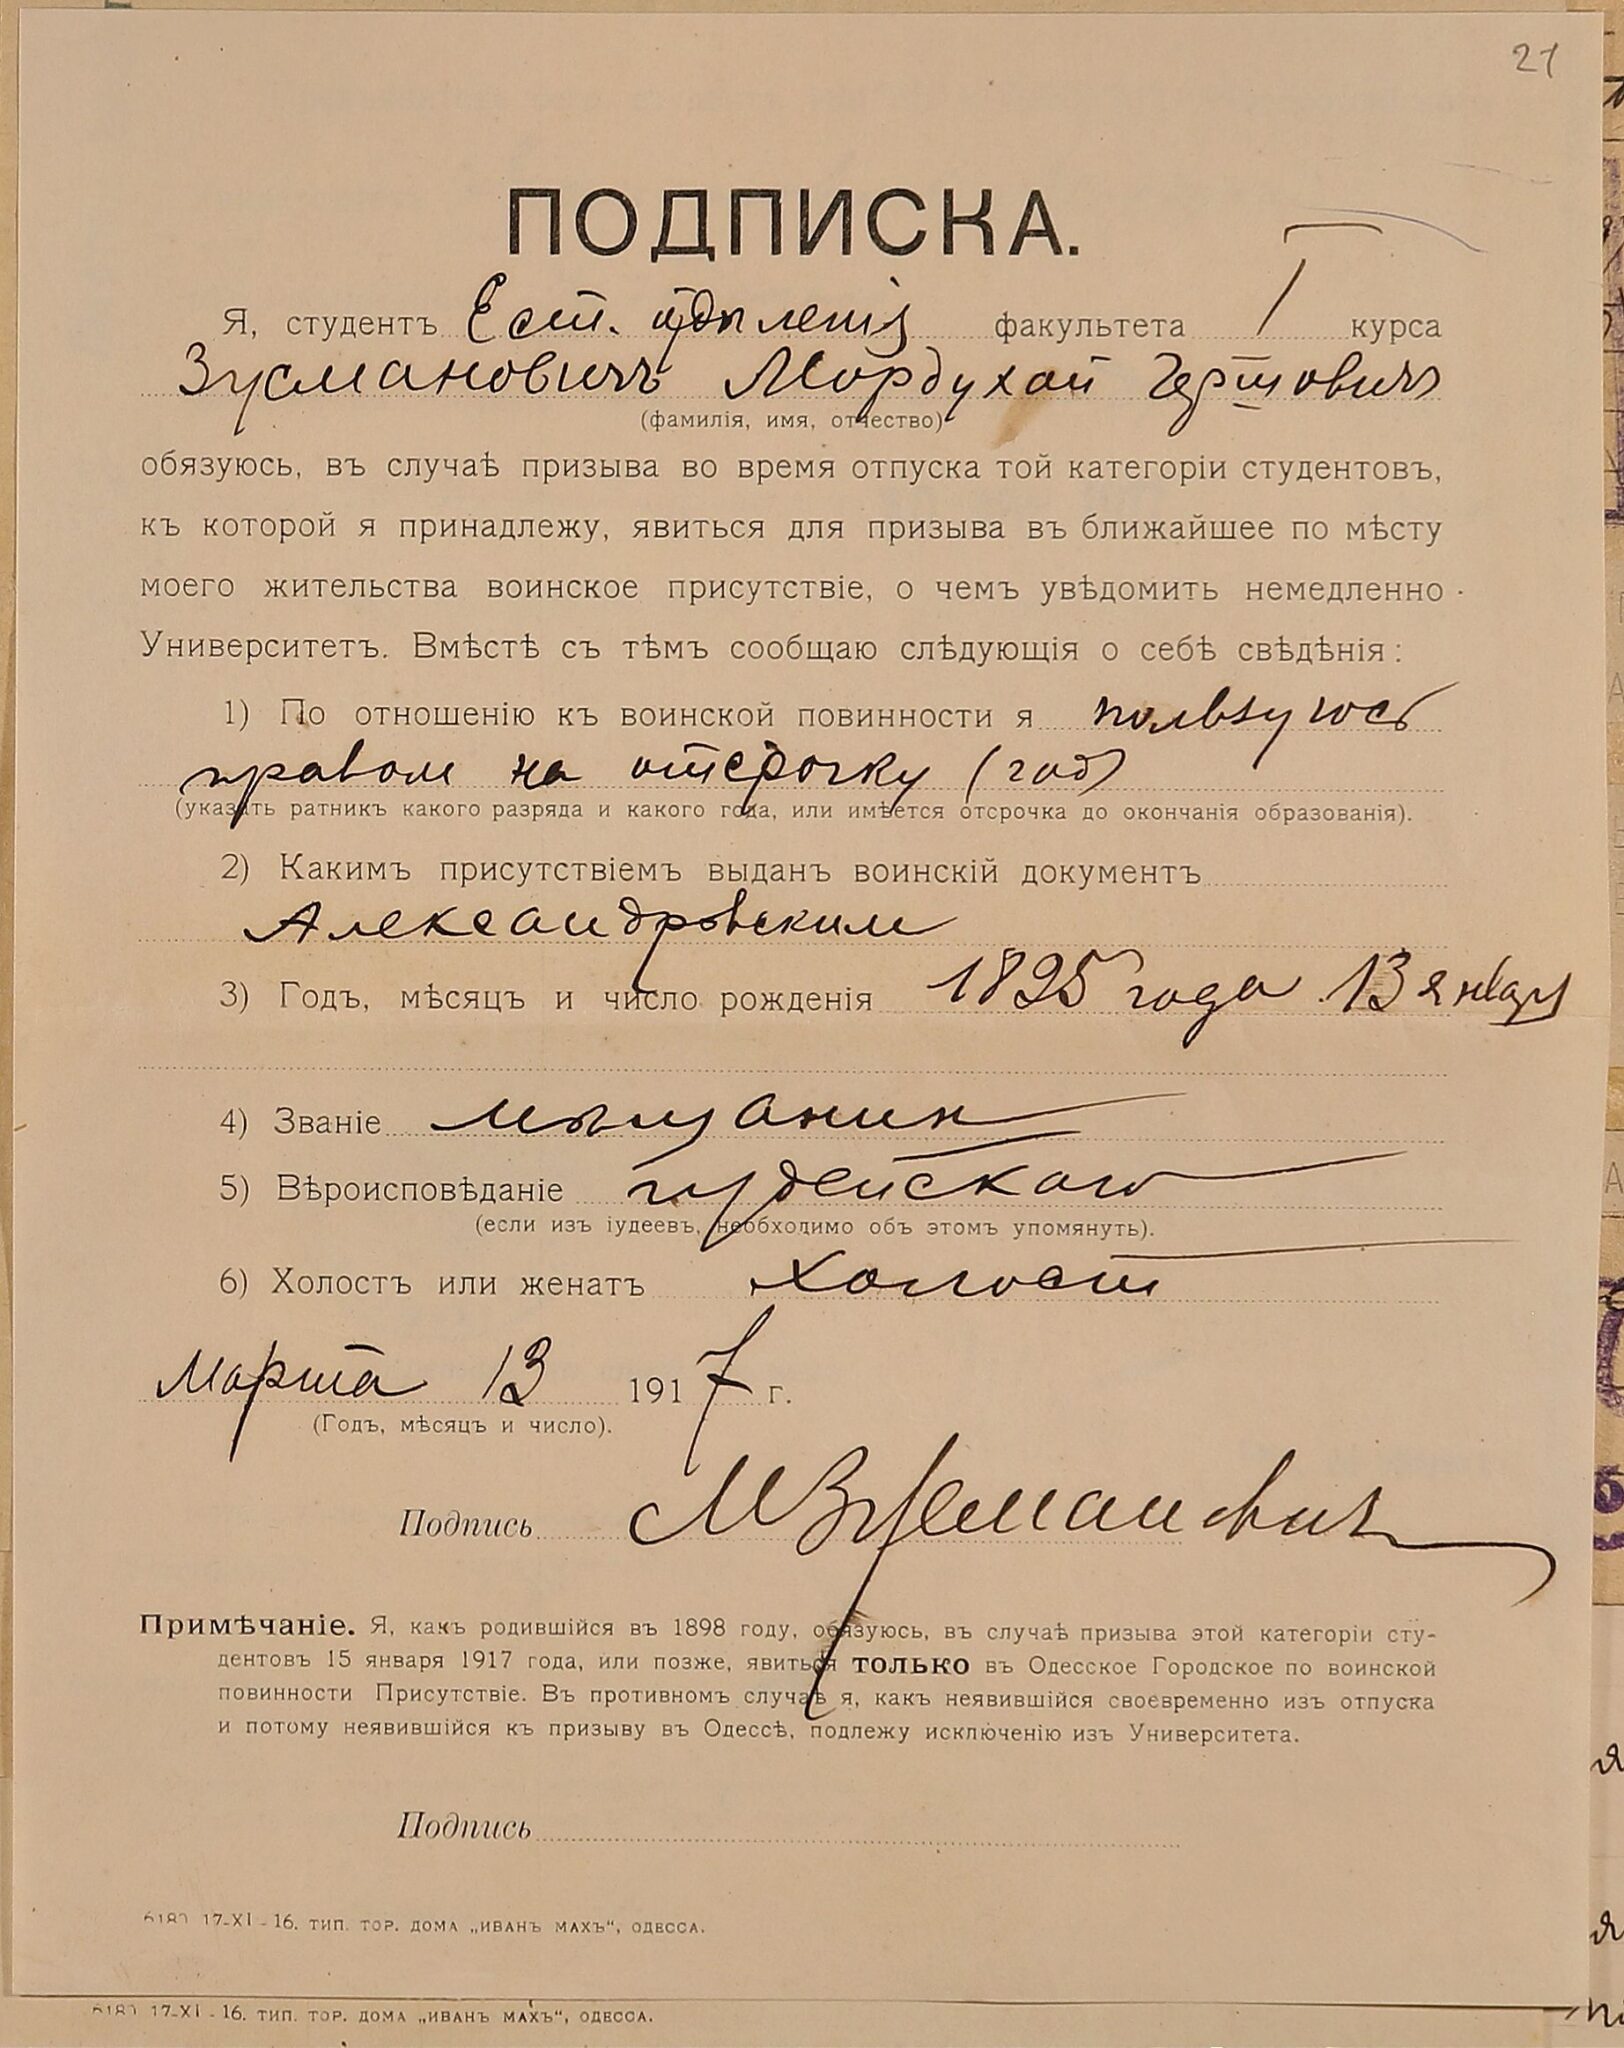 21
ПОДПИСКА.
Я, студентъ Ест. отдѣленія факультета I курса
Зусмановичъ Мордухай Гертовичъ
(фамилія, имя, отчество)
обязуюсь, въ случаѣ призыва во время отпуска той категоріи студентовъ,
къ которой я принадлежу, явиться для призыва въ ближайшее по мѣсту
моего жительства воинское присутствіе, о чемъ увѣдомить немедленно
Университетъ. Вмѣстѣ съ тѣмъ сообщаю слѣдующія о себѣ свѣдѣнія:
1) По отношенію къ воинской повинности я пользуюсь
правом на отсрочку (год)
(указать ратникъ какого разряда и какого года, или имѣется отсрочка до окончанія образованія).
2) Какимъ присутствіемъ выданъ воинскій документъ
Александровским
3) Годъ, мѣсяцъ и число рожденія 1895 года 13 января
4) Званіе мѣщанин
5) Вѣроисповѣданіе іудейскаго
(если изъ іудеевъ, необходимо объ этомъ упомянуть).
6) Холостъ или женатъ холост
Марта 13 1917 г.
(Годъ, мѣсяцъ и число).
Подпись М Зусманович
Примѣчаніе. Я, какъ родившійся въ 1898 году, обязуюсь, въ случаѣ призыва этой категоріи сту-
дентовъ 15 января 1917 года, или позже, явиться ТОЛЬКО въ Одесское Городское по воинской
повинности Присутствіе. Въ противномъ случаѣ я, какъ неявившійся своевременно изъ отпуска
и потому неявившійся къ призыву въ Одессѣ, подлежу исключенію изъ Университета.
Подпись
17-XI-16. ТИП. ТОР. ДОМА „ИВАНЪ МАХЪ“, ОДЕССА.
17-XI-16. ТИП. ТОР. ДОМА „ИВАНЪ МАХЪ“, ОДЕССА.